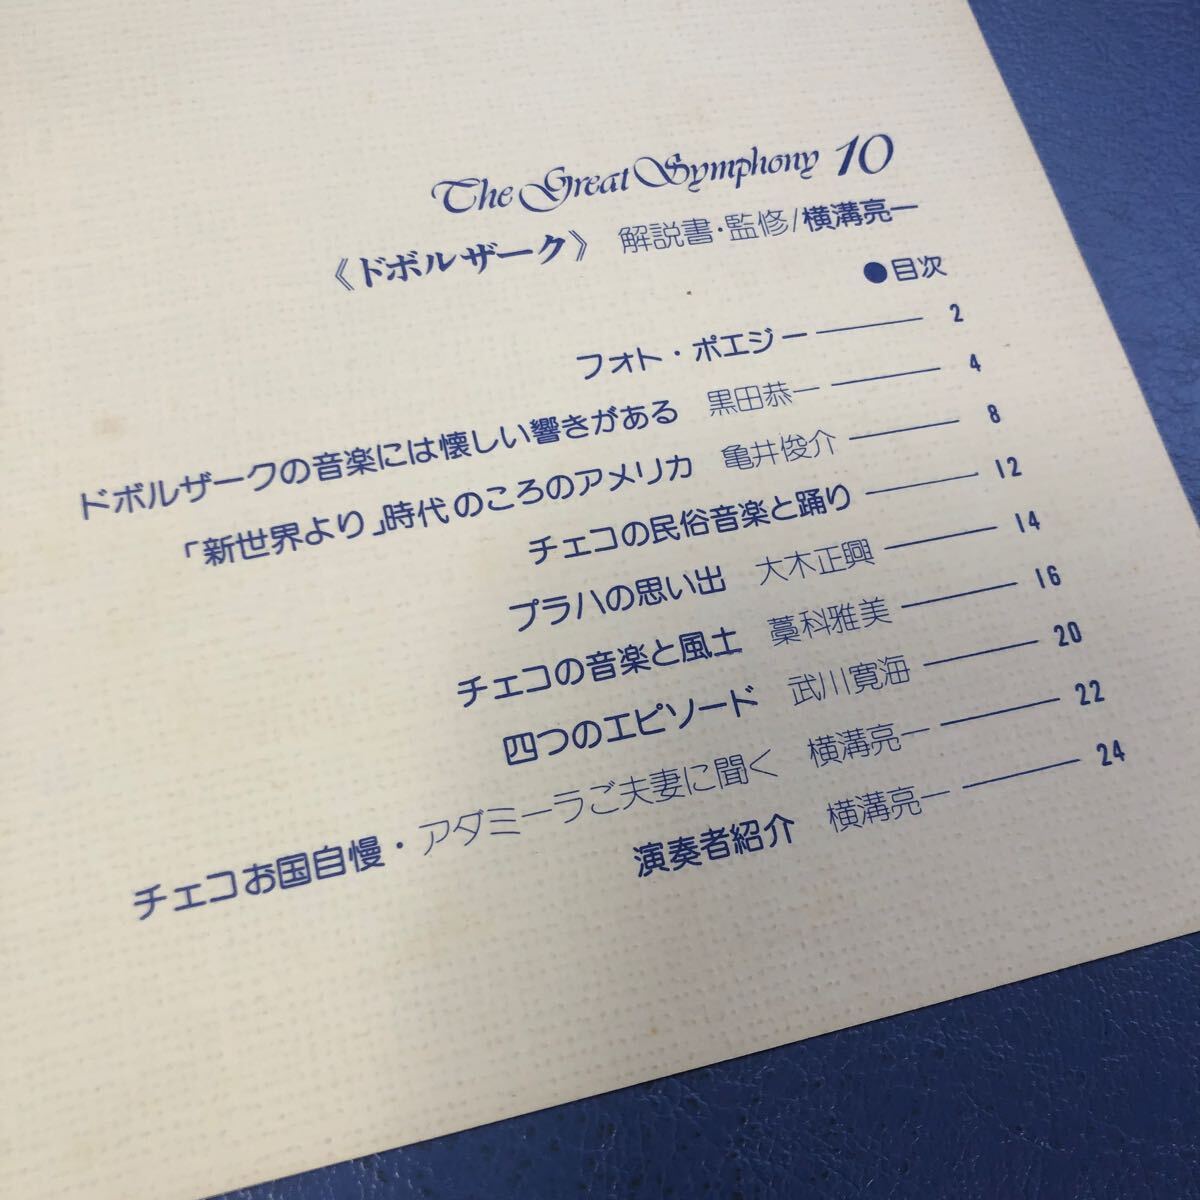 The Great Symphony 10
《ドボルザーク》 解説書・監修/横溝亮一
●目次
フォト・ポエジー 2
ドボルザークの音楽には懐しい響きがある 黒田恭一 4
「新世界より」時代のころのアメリカ 亀井俊介 8
チェコの民俗音楽と踊り 12
プラハの思い出 大木正興 14
チェコの音楽と風土 藁科雅美 16
四つのエピソード 武川寛海 20
チェコお国自慢・アダミーラご夫妻に聞く 横溝亮一 22
演奏者紹介 横溝亮一 24